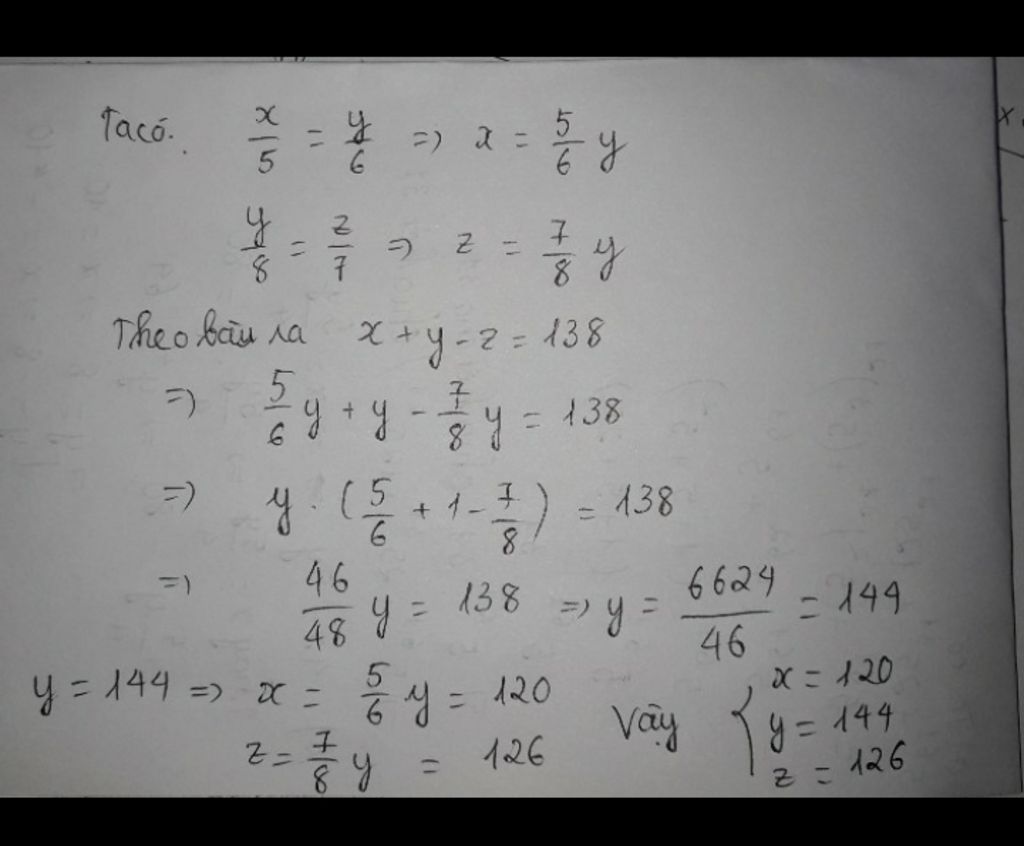 Ta có. x/5 = y/6 => x = 5/6 y
y/8 = z/7 => z = 7/8 y
Theo bài ra x + y - z = 138
=> 5/6 y + y - 7/8 y = 138
=> y . (5/6 + 1 - 7/8) = 138
=> 46/48 y = 138 => y = 6624/46 = 144
y = 144 => x = 5/6 y = 120
z = 7/8 y = 126
Vậy { x = 120
y = 144
z = 126